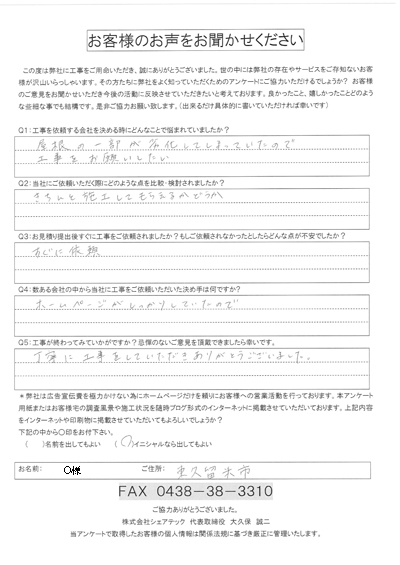 お客様のお声をお聞かせください
この度は弊社に工事をご用命いただき、誠にありがとうございました。世の中には弊社の存在やサービスをご存知ないお客
様が沢山いらっしゃいます。その方たちに弊社をよく知っていただくためのアンケートにご協力いただけるでしょうか? お客様
のご意見をお聞かせいただき今後の活動に反映させていただきたいと考えております。良かったこと、嬉しかったことどのよう
な些細な事でも結構です。是非ご協力お願い致します。(出来るだけ具体的に書いていただければ幸いです)
Q1:工事を依頼する会社を決める時にどんなことで悩まれていましたか?
屋根の一部が劣化してしまっていたので
工事をお願いしたい
Q2:当社にご依頼いただく際にどのような点を比較・検討されましたか?
きちんと施工してもらえるかどうか
Q3:お見積り提出後すぐに工事をご依頼されましたか?もしご依頼されなかったとしたらどんな点が不安でしたか?
すぐに依頼
Q4:数ある会社の中から当社に工事をご依頼いただいた決め手は何ですか?
ホームページがしっかりしていたので
Q5:工事が終わってみていかがですか?忌憚のないご意見を頂戴できましたら幸いです。
丁寧に工事をしていただきありがとうございました。
*弊社は広告宣伝費を極力かけない為にホームページだけを頼りにお客様への営業活動を行っております。本アンケート
用紙またはお客様宅の調査風景や施工状況を随時ブログ形式のインターネットに掲載させていただいております。上記内容
をインターネットや印刷物に掲載させていただいてもよろしいでしょうか?
下記の中から〇印をお付下さい。
( )名前を出してもよい (〇)イニシャルなら出してもよい
お名前: O様 ご住所: 東久留米市
FAX 0438-38-3310
ご協力ありがとうございました。
株式会社シェアテック 代表取締役 大久保 誠二
当アンケートで取得したお客様の個人情報は関係法規に基づき厳正に管理いたします。